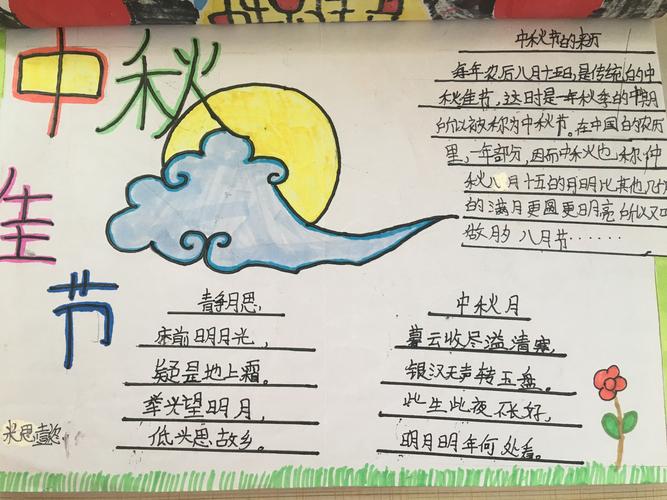 中秋
佳
节
中秋节的来历
每年农历八月十五日是传统的中
秋佳节，这时是一年秋季的中期
所以被称为中秋节。在中国的农历
里，一年部分，因而中秋也称仲
秋八月十五的月明比其他几
的满月更圆更明亮所以又
做月的八月节……
青争月思，
床前明月光，
疑是地上霜。
举头望明月，
低头思故乡。
中秋月
暮云收尽溢清寒，
银汉无声转玉盘。
此生此夜不长好，
明月明年何处看。
米思